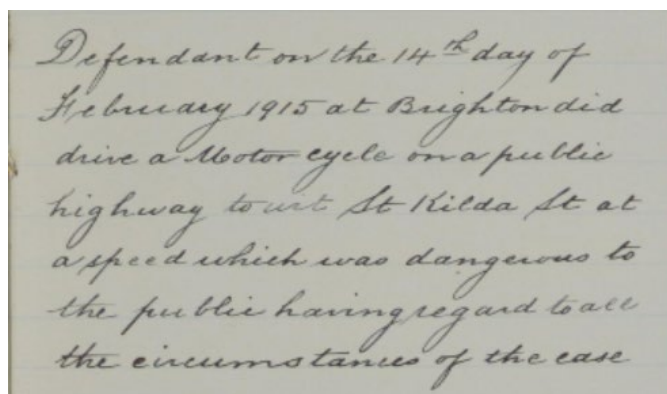 Defendant on the 14th day of
February 1915 at Brighton did
drive a Motor cycle on a public
highway to wit St Kilda St at
a speed which was dangerous to
the public having regard to all
the circumstances of the case